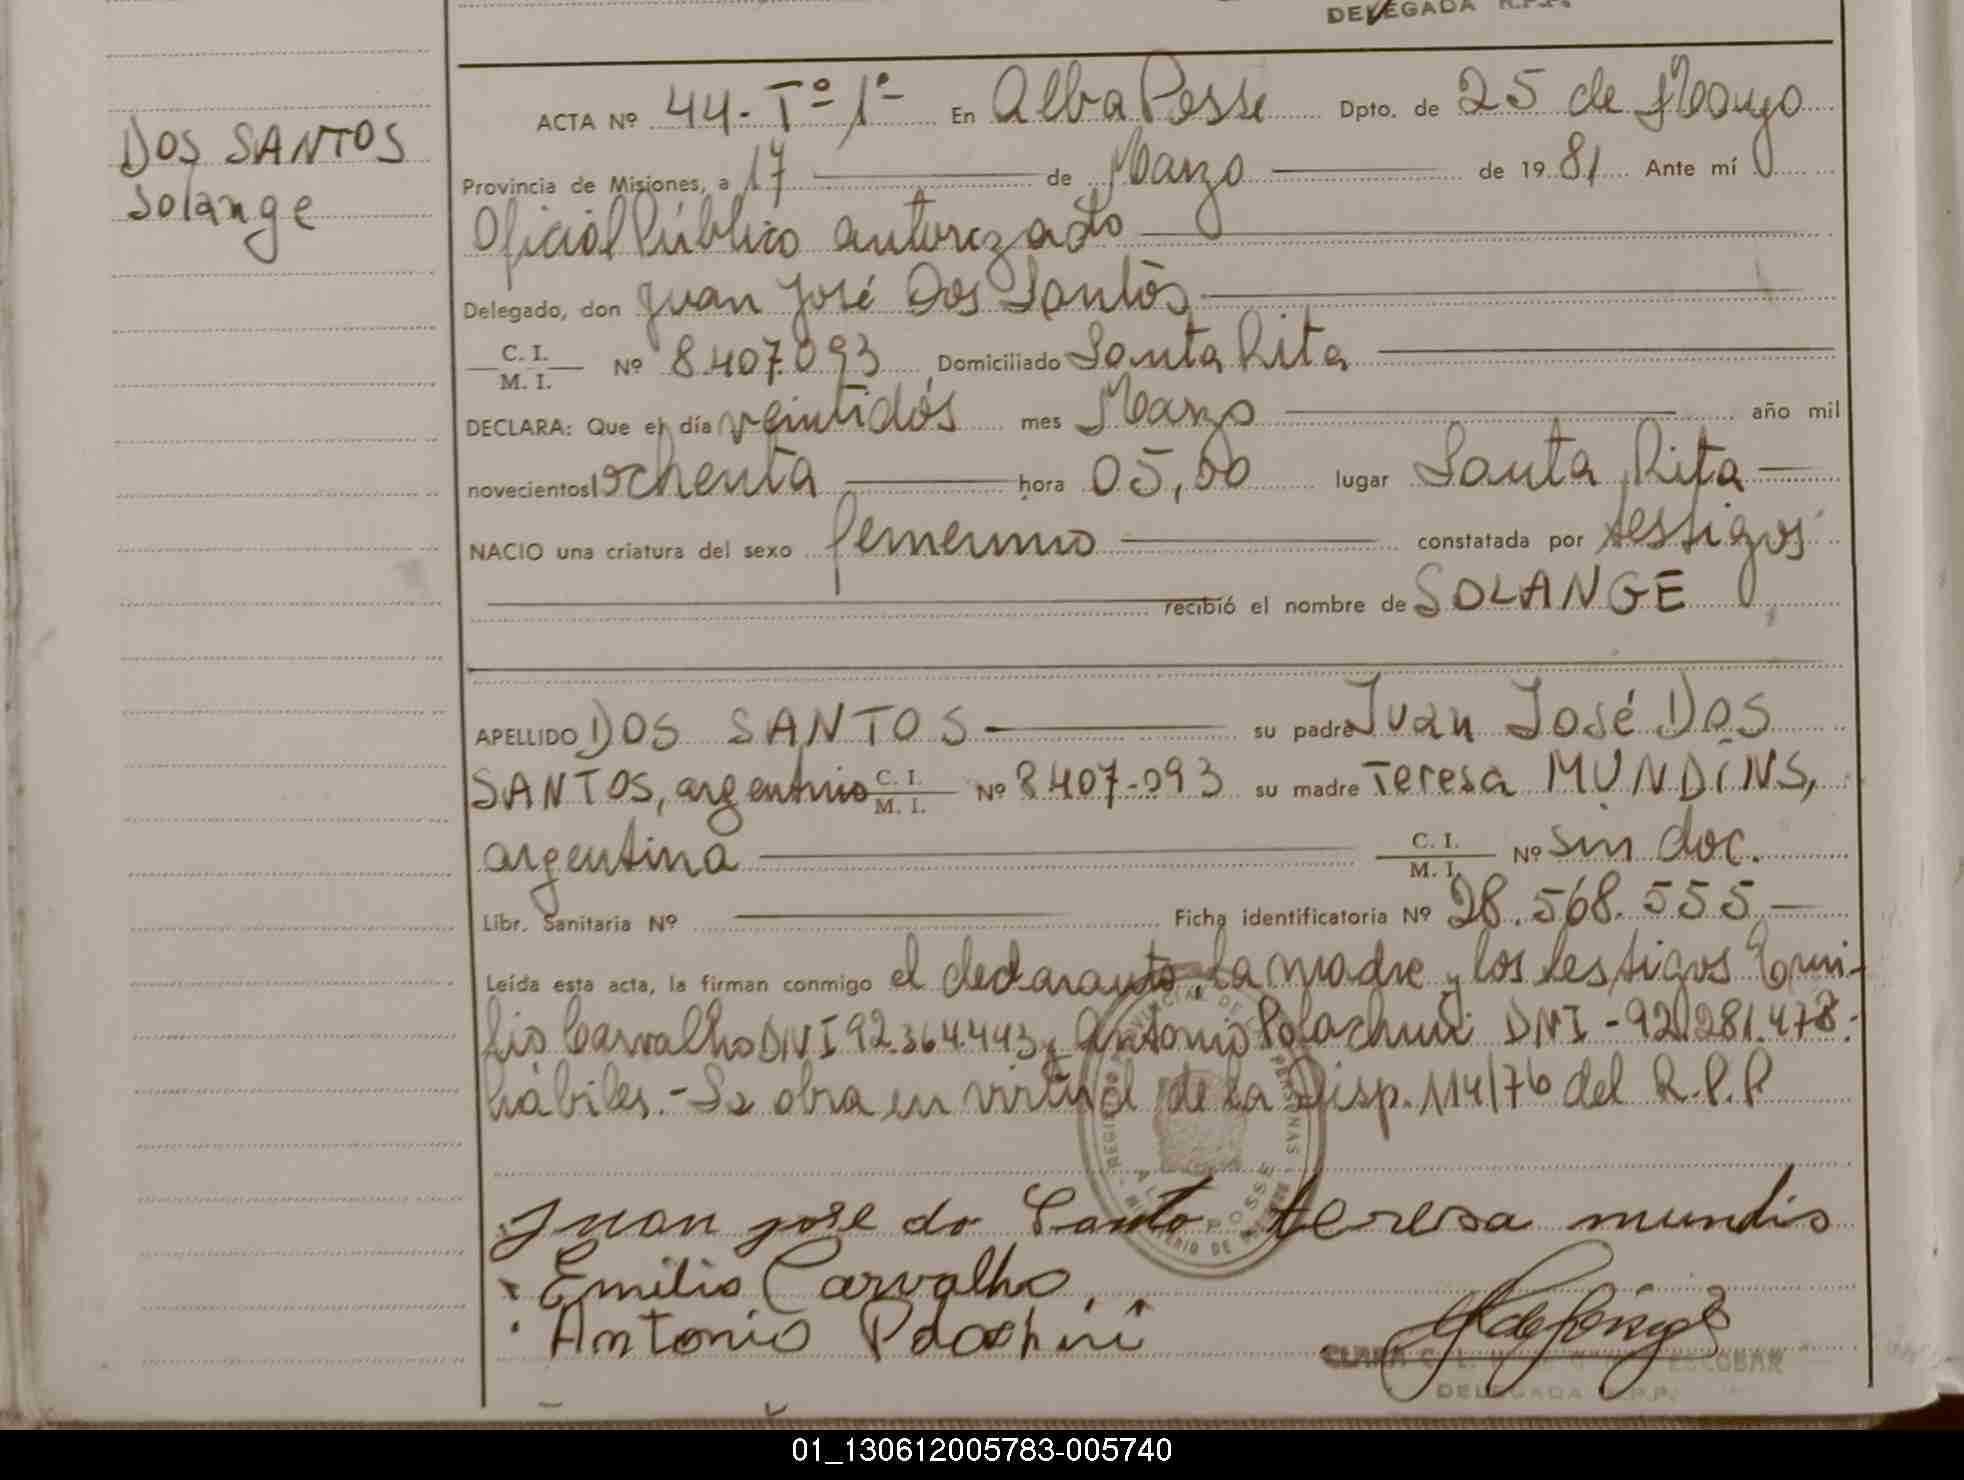 DELEGADA R.P.P.
DOS SANTOS
Solange
ACTA Nº 44-Tº 1º- En Alba Posse Dpto. de 25 de Mayo
Provincia de Misiones, a 17 de Marzo de 1981 Ante mí
Oficial Público autorizado
Delegado, don Juan José Dos Santos
C. I.
M. I. Nº 8.407.093 Domiciliado Santa Rita
DECLARA: Que el día veintidós mes Marzo año mil
novecientos ochenta hora 05,00 lugar Santa Rita
NACIO una criatura del sexo femenino constatada por testigos
recibió el nombre de SOLANGE
APELLIDO DOS SANTOS su padre Juan José DOS
SANTOS, argentino C. I. M. I. Nº 8.407-093 su madre Teresa MUNDINS,
argentina C. I. M. I. Nº sin doc.
Libr. Sanitaria Nº Ficha identificatoria Nº 28.568.555
Leída esta acta, la firman conmigo el declarante, la madre y los testigos Emi-
lio Carvalho DNI 92.364.443 y Antonio DNI -92.281.478-
hábiles.- Se obra en virtud de la Disp. 114/76 del R.P.P
Juan jose do Santo teresa mundis
Emilio Carvalho
Antonio
ESCOBAR
DELEGADA R.P.P.
01_130612005783-005740